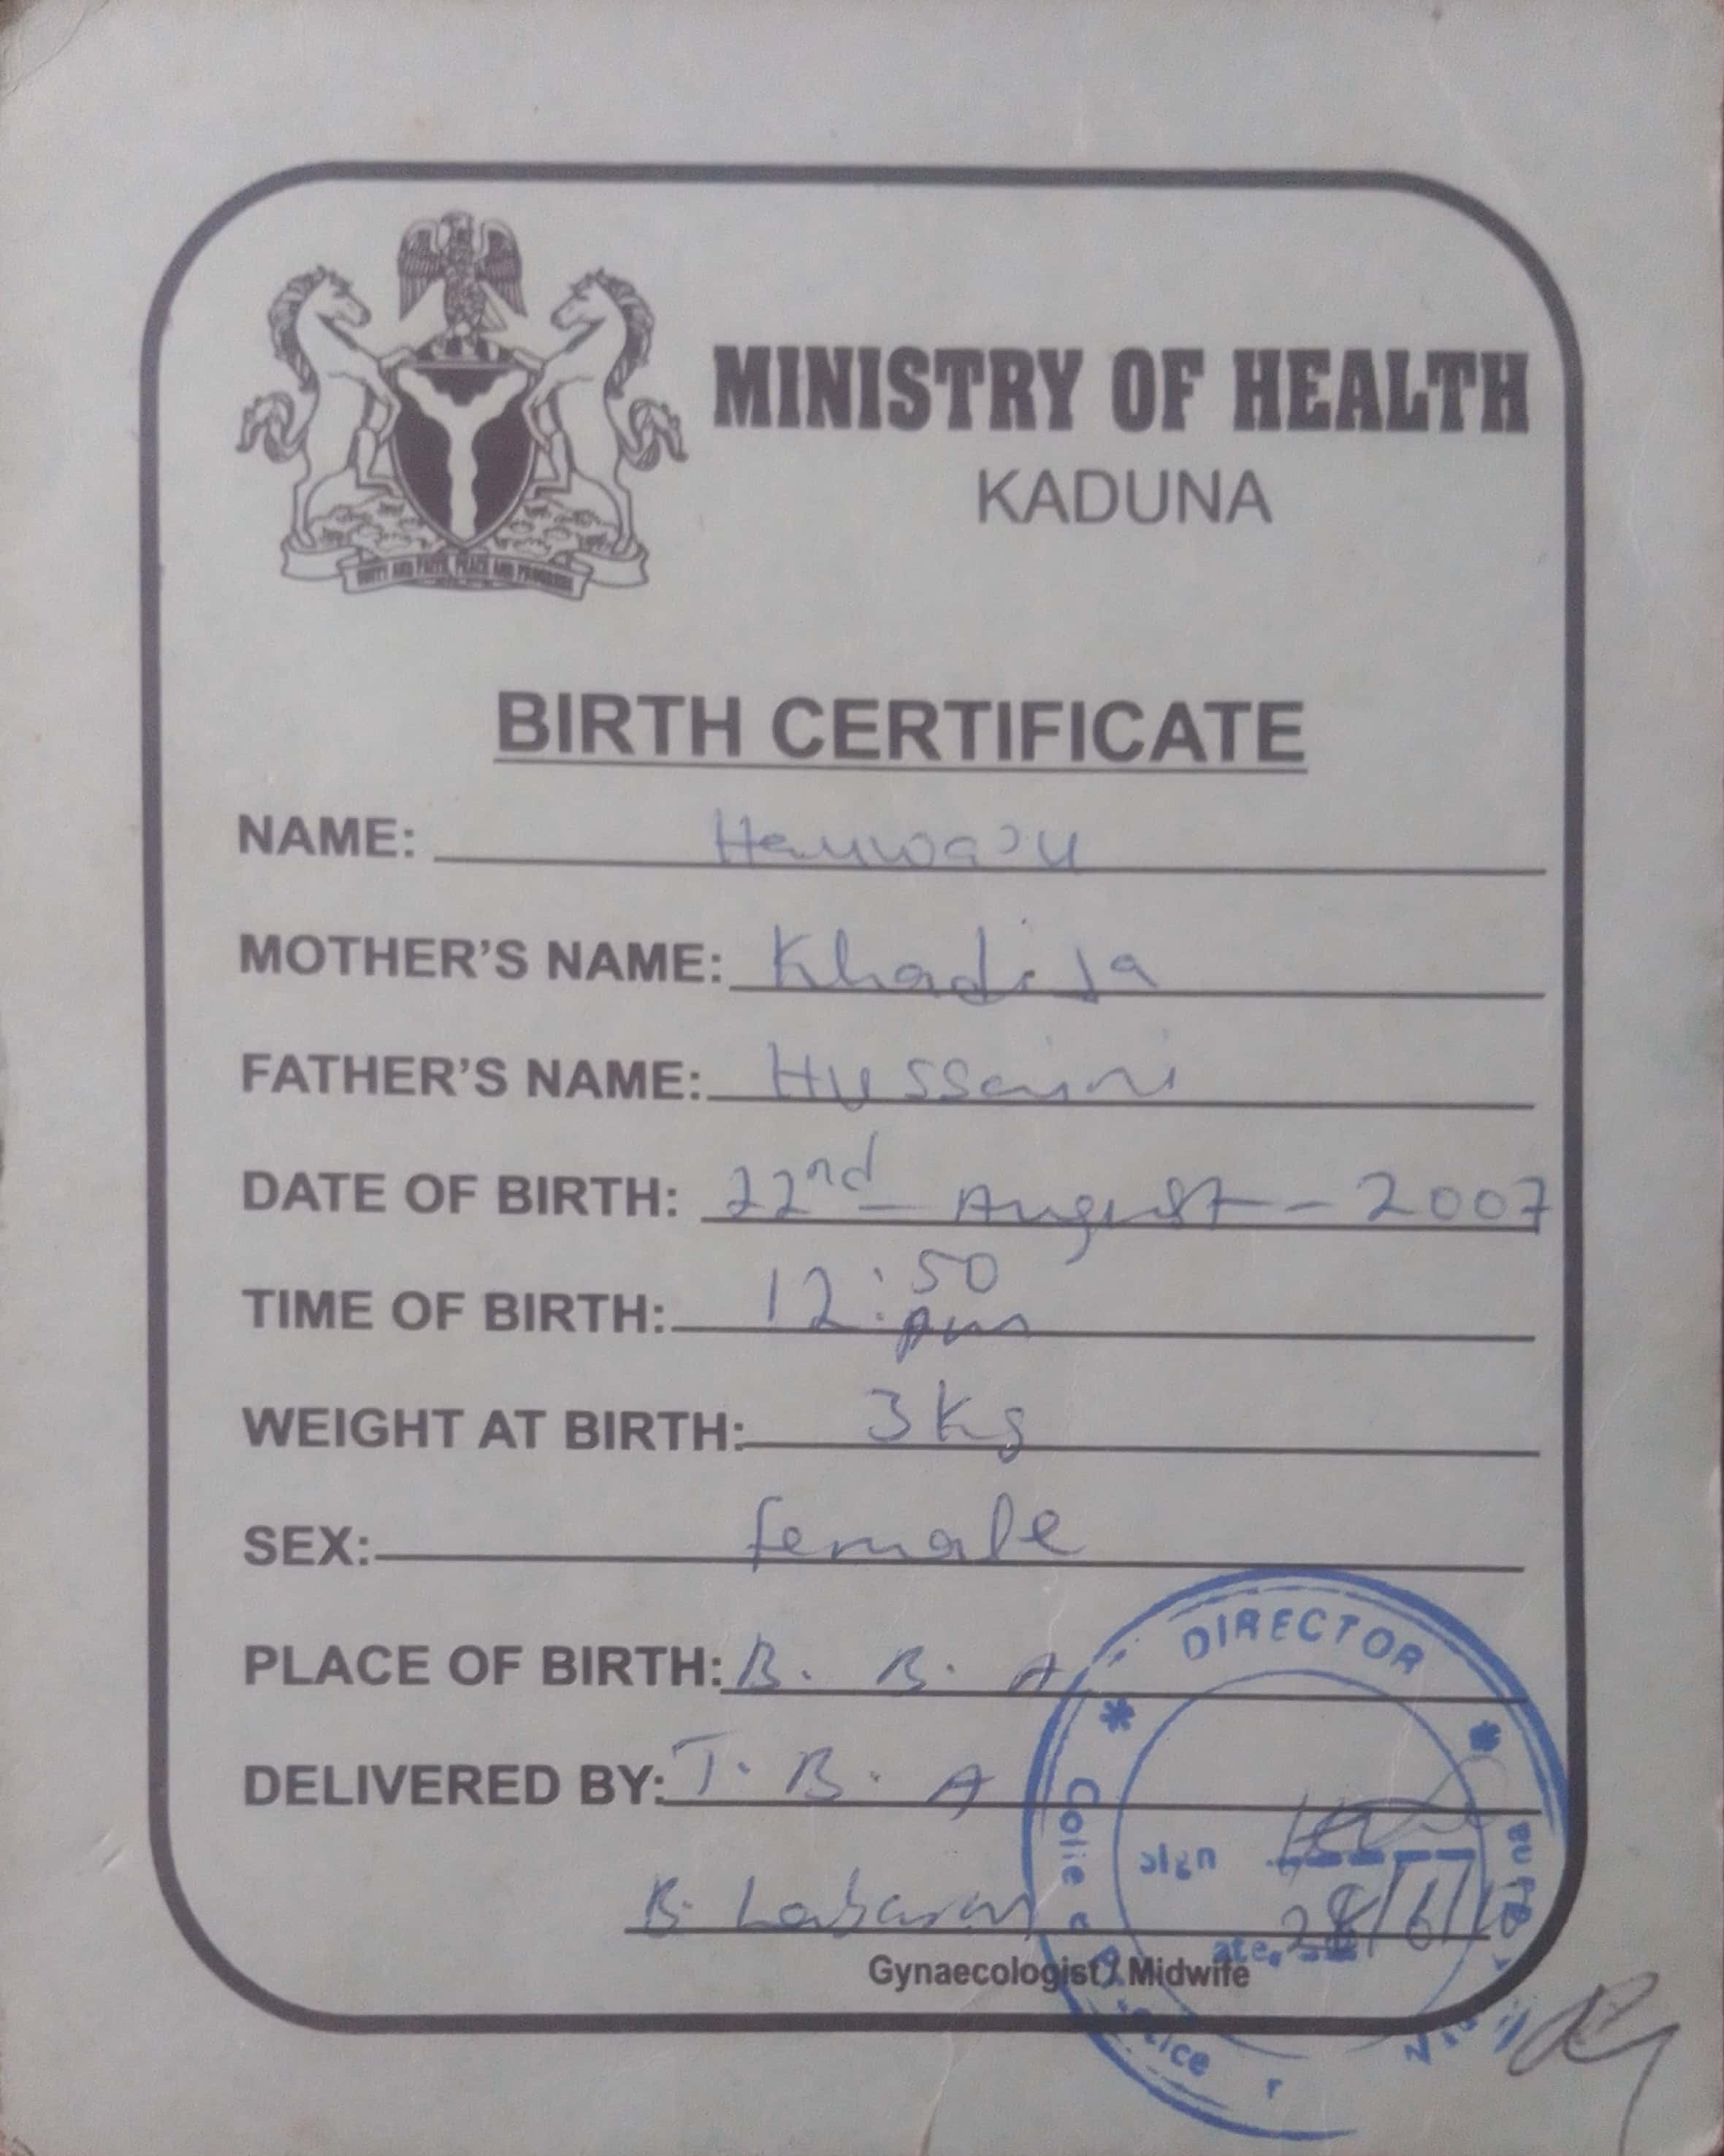 MINISTRY OF HEALTH
KADUNA
UNITY AND FAITH, PEACE AND PROGRESS
BIRTH CERTIFICATE
NAME: Hauwa'u
MOTHER'S NAME: Khadija
FATHER'S NAME: Hussaini
DATE OF BIRTH: 22nd - August - 2007
TIME OF BIRTH: 12:50 pm
WEIGHT AT BIRTH: 3kg
SEX: female
PLACE OF BIRTH: B. B. A
DELIVERED BY: T. B. A
B. Labaran
Gynaecologist / Midwife
DIRECTOR
sign